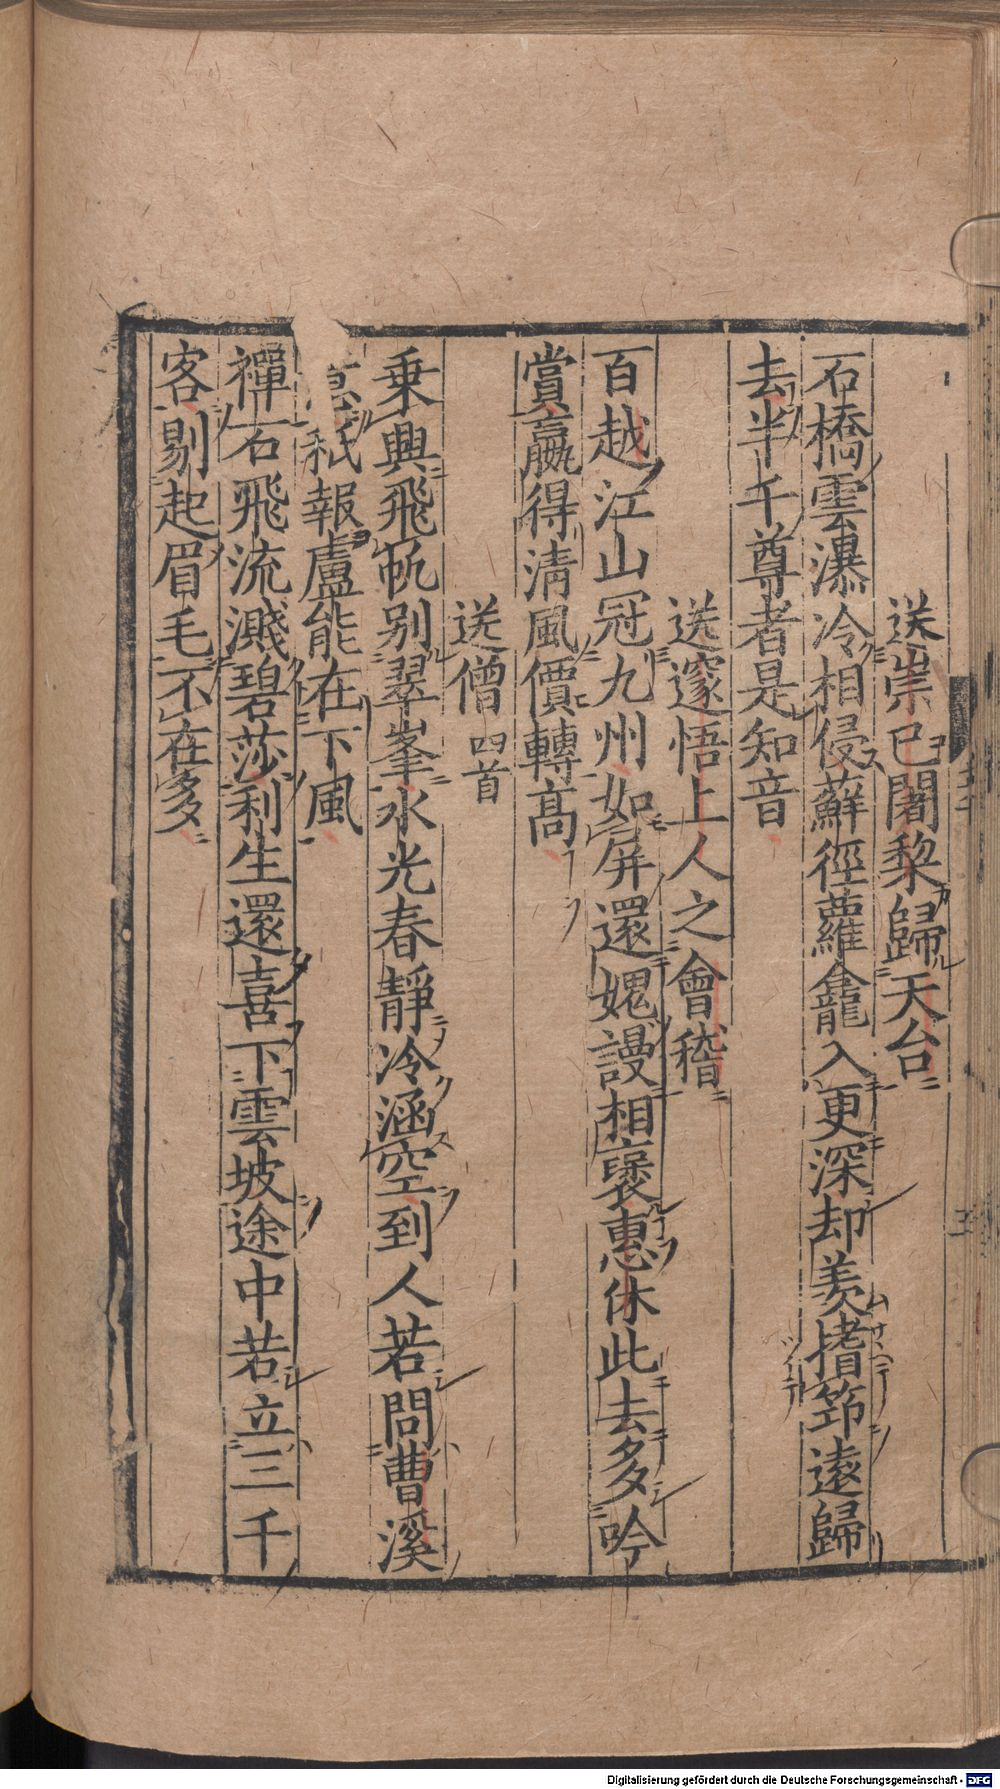 送崇已闍黎歸天台
石橋雲瀑冷相侵蘚徑蘿龕入更深却羨搘筇遠歸
去半千尊者是知音
送邃悟上人之會稽
百越江山冠九州如屏還媿謾相褒惠休此去多吟
賞贏得清風價轉高
送僧四首
乗興飛帆别翠峯水光春靜冷涵空到人若問曹溪
意秖報盧能在下風
禪石飛流濺碧莎利生還喜下雲坡途中若立三千
客剔起眉毛不在多
Digitalisierung gefördert durch die Deutsche Forschungsgemeinschaft - DFG